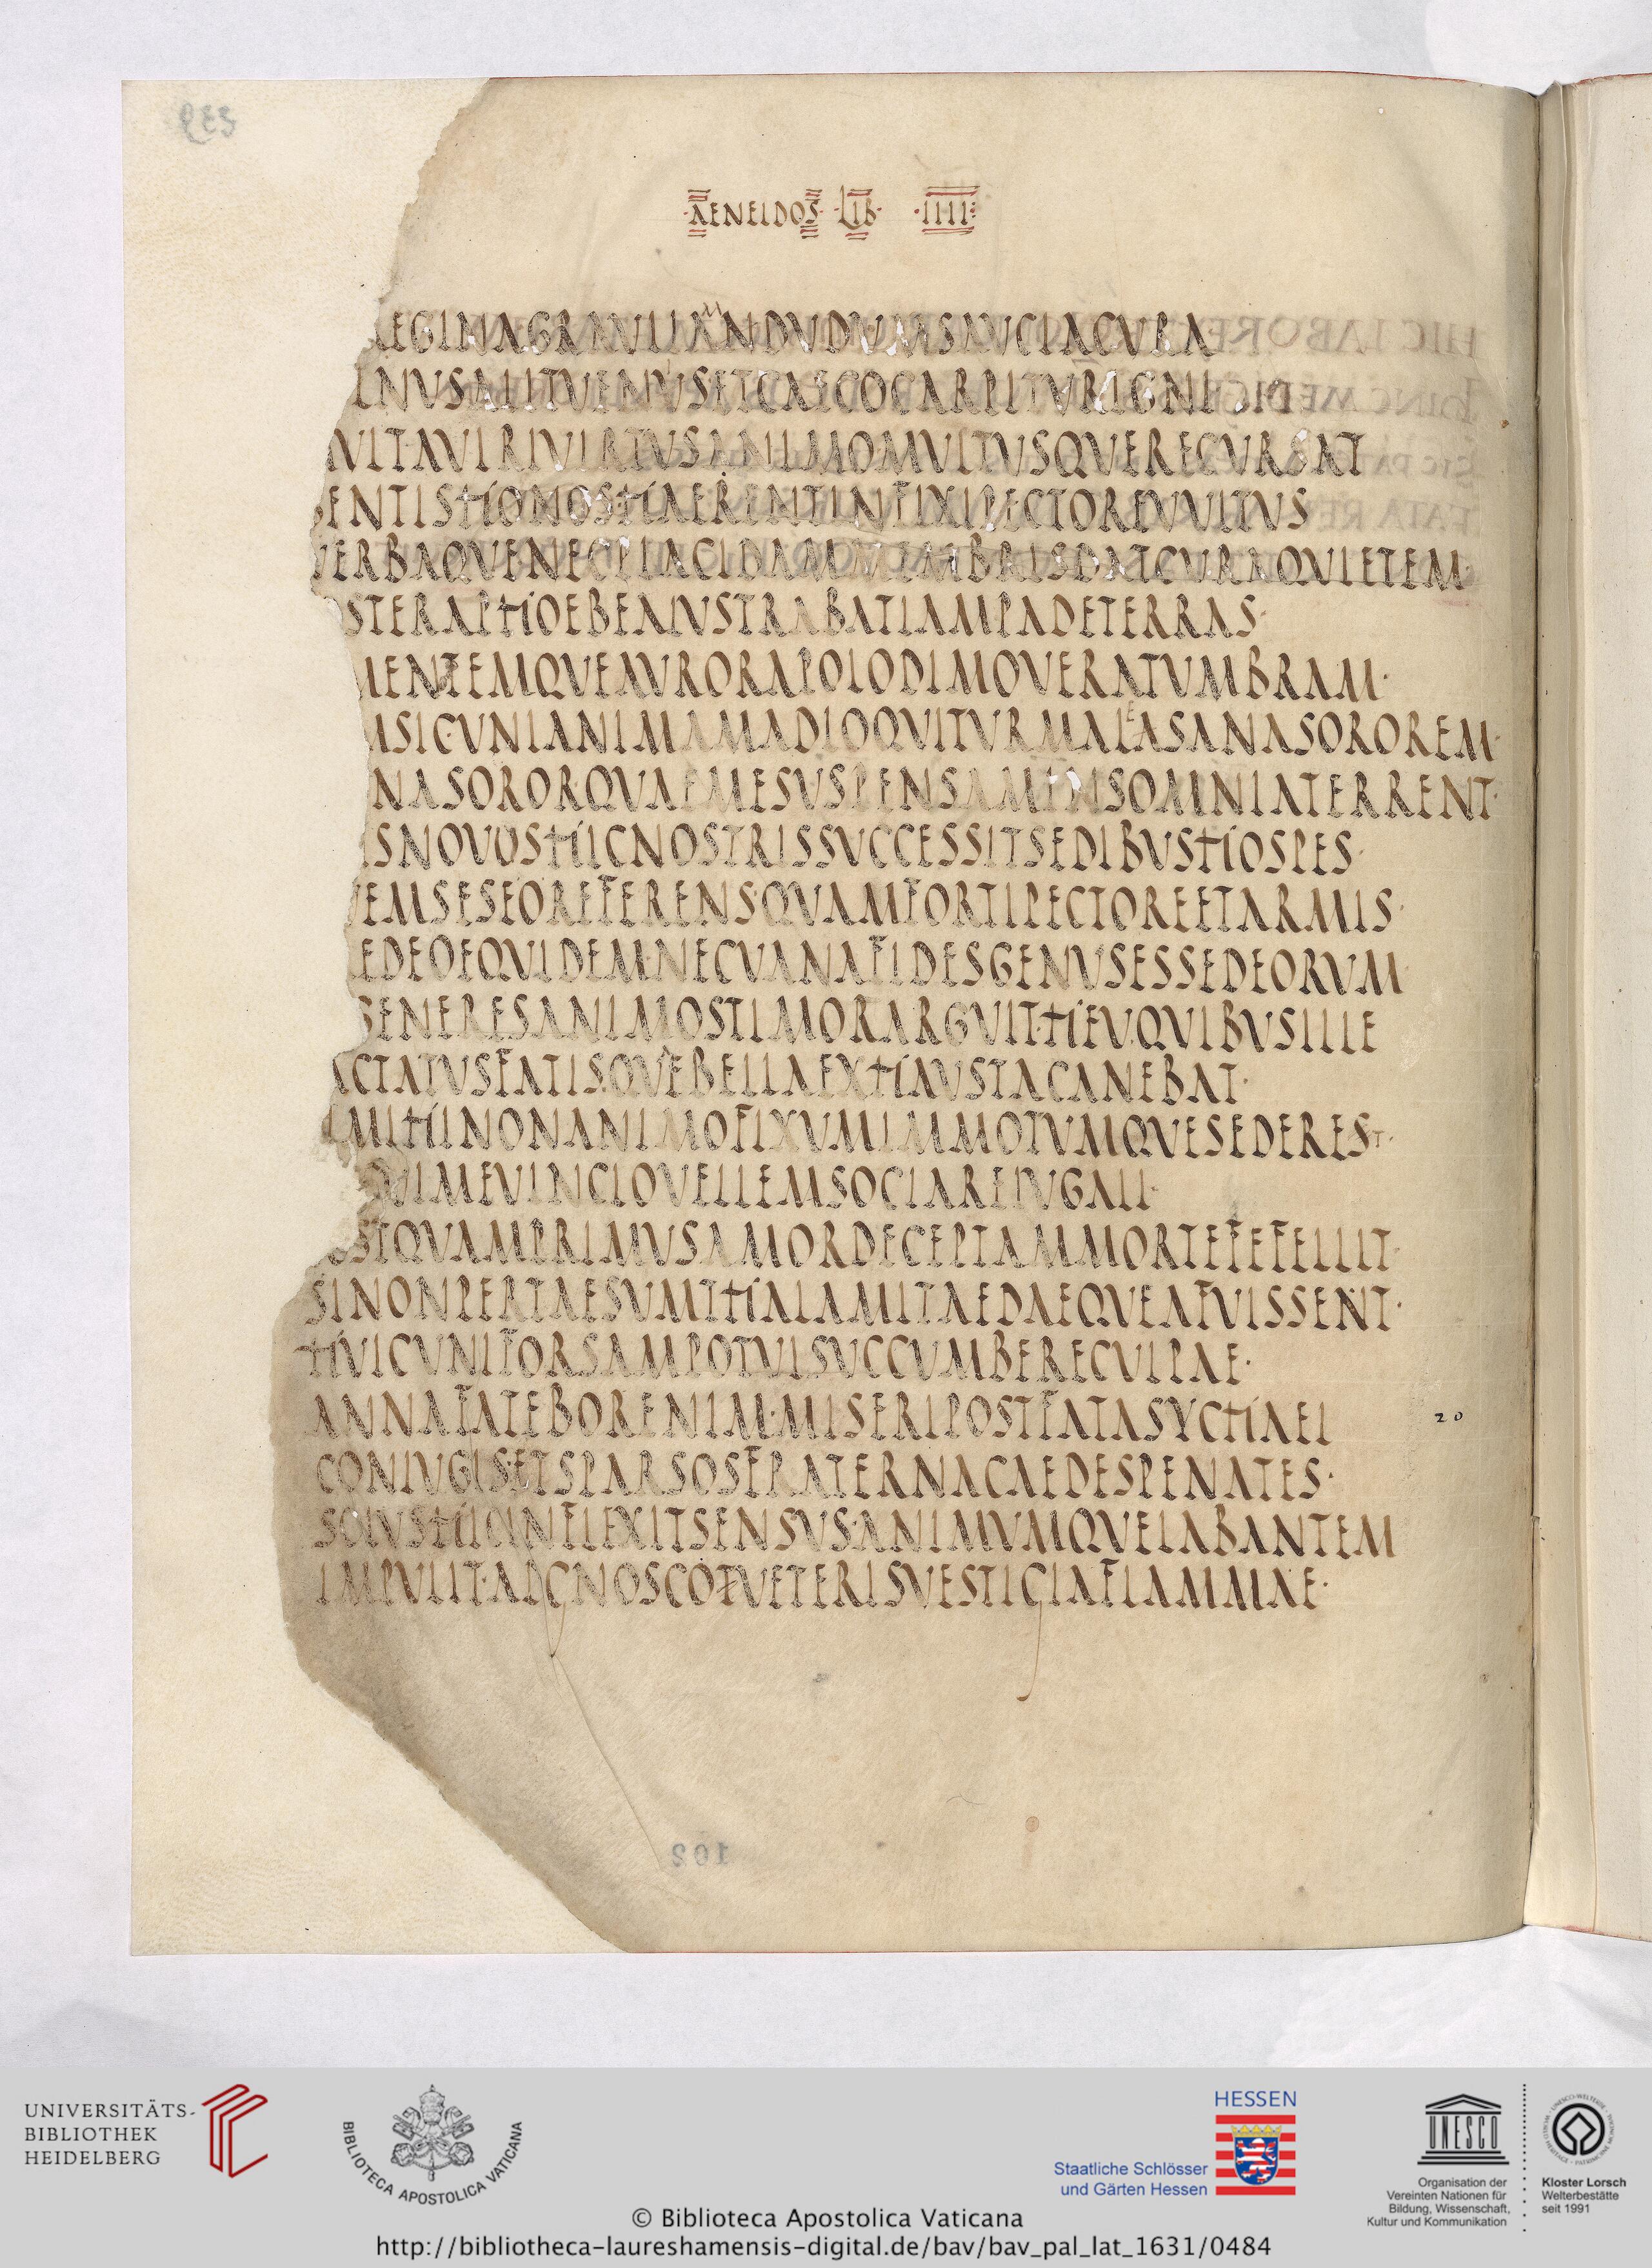 AENEIDOS · LIB · IIII ·
REGINAGRAVIIAMDVDVMSAVCIACVRA
VNVSALITVENISETCAECOCARPITVRIGNI
MVLTAVIRIVIRTVSANIMOMVLTVSQVERECVRSAT
GENTISHONOSHAERENTINFIXIPECTOREVVLTVS
VERBAQVENECPLACIDAMMEMBRISDATCVRAQVIETEM
STERAPHOEBEALVSTRABATLAMPADETERRAS·
MENTEMQVEAVRORAPOLODIMOVERATVMBRAM·
MSICVNIANIMAMADLOQVITVRMALEASANASOROREM·
NASORORQVAEMESVSPENSAMINSOMNIATERRENT·
ISNOVOSHICNOSTRISSVCCESSITSEDIBVSHOSPES·
EMSESEOREFERENSQVAMFORTIPECTOREETARMIS·
EDEOEQVIDEM·NECVANAFIDESGENVSESSEDEORVM·
GENERESANIMOSTIMORARGVIT·HEV·QVIBVSILLE
ACTATVSFATIS·QVEBELLAEXHAVSTACANEBAT·
IMIHINONANIMOFIXVMIMMOTVMQVESEDEREST·
QVIMEVINCLOVELLEMSOCIAREIVGALI·
OSTQVAMPRIMVSAMORDECEPTAMMORTEFEFELLIT·
SINONPERTAESVMTHALAMITAEDAEQVEAFVISSENT·
HVICVNIFORSAMPOTVISVCCVMBERECVLPAE·
ANNAFATEBORENIM·MISERIPOSTFATASYCHAEI
20
CONIVGISETSPARSOSFRATERNACAEDESPENATES·
SOLVSHICINFLEXITSENSVS·ANIMVMQVELABANTEM
IMPVLIT·ADGNOSCOTVETERISVESTIGIAFLAMMAE·
102
UNIVERSITÄTS-
BIBLIOTHEK
HEIDELBERG
BIBLIOTECA APOSTOLICA VATICANA
HESSEN
Staatliche Schlösser
und Gärten Hessen
UNESCO
Organisation der
Vereinten Nationen für
Bildung, Wissenschaft,
Kultur und Kommunikation
Kloster Lorsch
Welterbestätte
seit 1991
© Biblioteca Apostolica Vaticana
http://bibliotheca-laureshamensis-digital.de/bav/bav_pal_lat_1631/0484